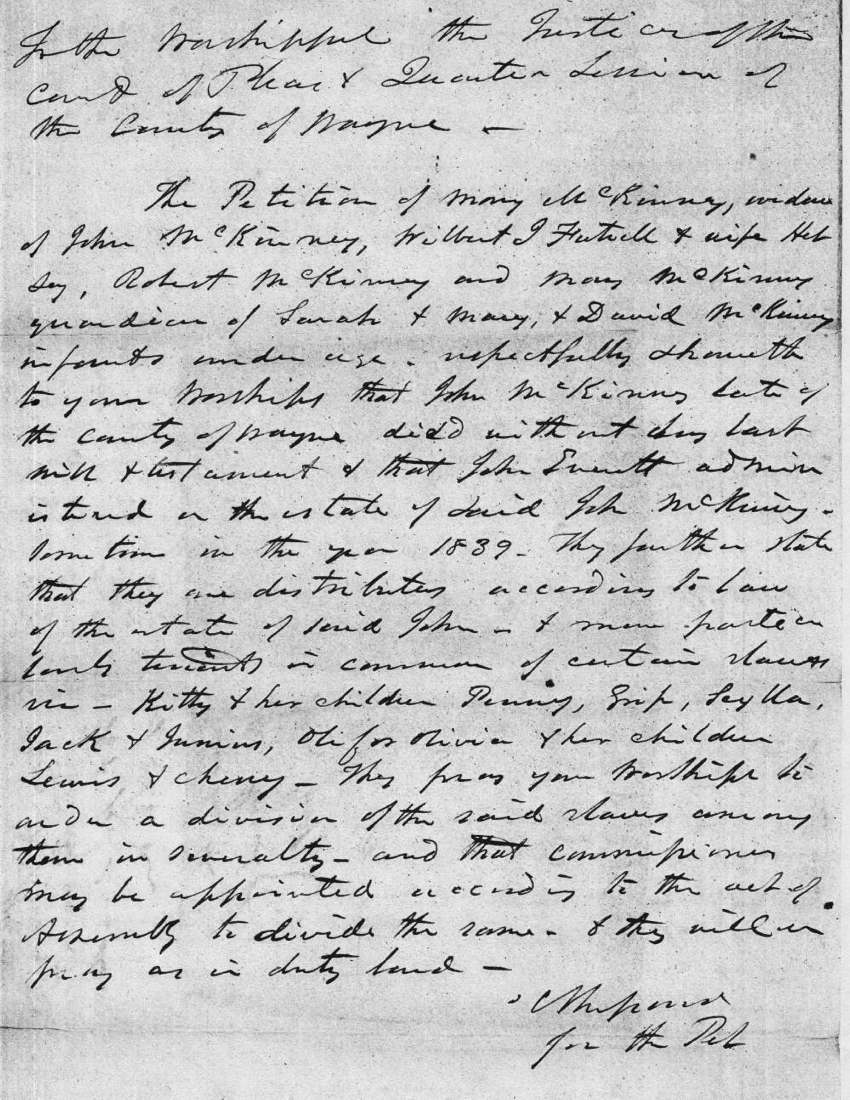 To the Worshipful the Justices of the
Court of Pleas & Quarter Session of
the County of Wayne —
The Petition of Mary McKinney, widow
of John McKinney, Wilbert J Futrell & wife Het
sey, Robert McKinney and Mary McKinney
guardian of Sarah & Mary, & David McKinney
infants under age - respectfully sheweth
to your Worships that John McKinney late of
the County of Wayne died without any last
will & testament & that John Everett admin
istered on the estate of said John McKinney -
sometime in the year 1839 - They further state
that they are distributees according to law
of the estate of said John - & more particu
larly tenants in common of certain slaves
viz - Kitty & her children Penny, Grip, Scylla,
Jack & Junius, Olif or Olivia & her children
Lewis & Cheney - They pray your Worships to
order a division of the said slaves among
them in severalty - and that commissioners
may be appointed according to the act of
Assembly to divide the same - & they will ever
pray as in duty bound —
for the Pet